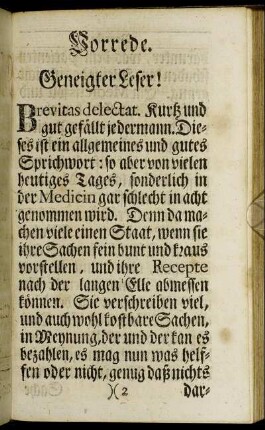 Vorrede.
Geneigter Leser!
Brevitas delectat. Kurtz und
gut gefällt jedermann. Die-
ses ist ein allgemeines und gutes
Sprichwort: so aber von vielen
heutiges Tages, sonderlich in
der Medicin gar schlecht in acht
genommen wird. Denn da ma-
chen viele einen Staat, wenn sie
ihre Sachen fein bunt und kraus
vorstellen, und ihre Recepte
nach der langen Elle abmessen
können. Sie verschreiben viel,
und auch wohl kostbare Sachen,
in Meynung, der und der kan es
bezahlen, es mag nun was helf-
fen oder nicht, genug daß nichts
)( 2 dar-